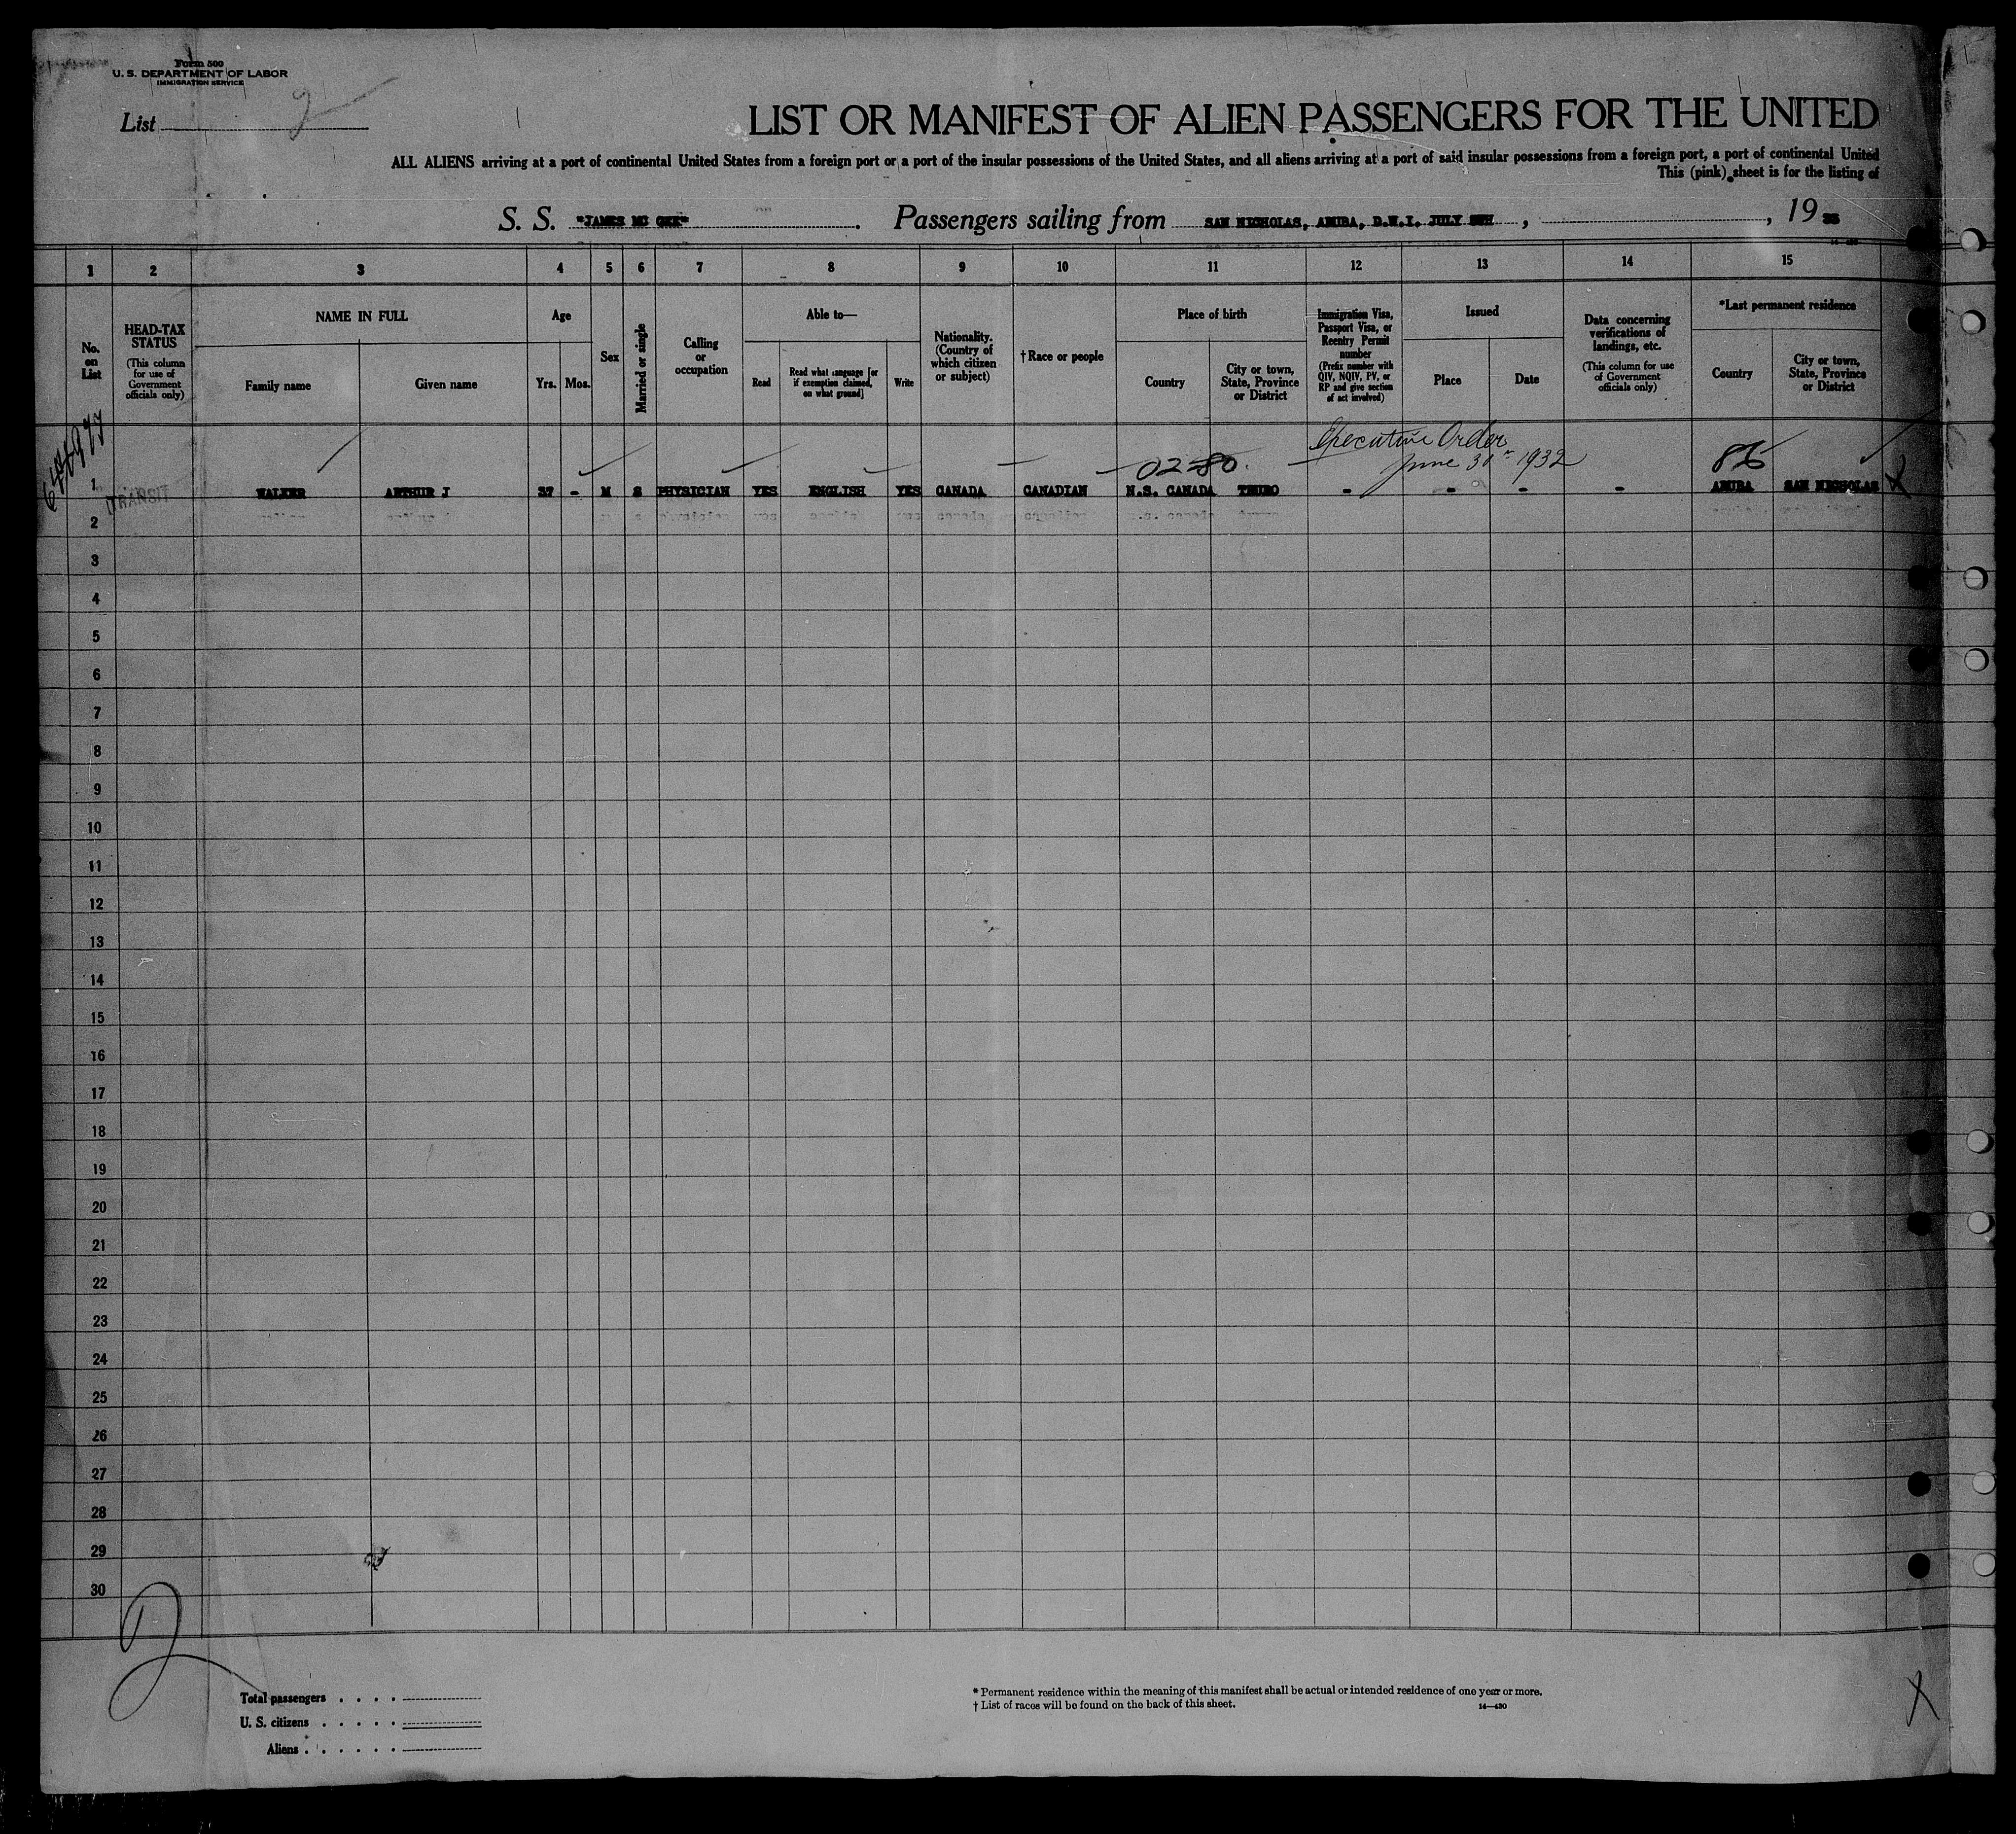 Form 500
U. S. DEPARTMENT OF LABOR
IMMIGRATION SERVICE
List 2
LIST OR MANIFEST OF ALIEN PASSENGERS FOR THE UNITED
ALL ALIENS arriving at a port of continental United States from a foreign port or a port of the insular possessions of the United States, and all aliens arriving at a port of said insular possessions from a foreign port, a port of continental United
This (pink) sheet is for the listing of
S. S. "JAMES MC GEE". Passengers sailing from SAN NICHOLAS, ARUBA, D.W.I. JULY , , 19
1 2 3 4 5 6 7 8 9 10 11 12 13 14 15
No. on List
HEAD-TAX STATUS
(This column for use of Government officials only)
NAME IN FULL
Family name
Given name
Age
Yrs.
Mos.
Sex
Married or single
Calling or occupation
Able to—
Read
Read what language [or if exemption claimed, on what ground]
Write
Nationality. (Country of which citizen or subject)
†Race or people
Place of birth
Country
City or town, State, Province or District
Immigration Visa, Passport Visa, or Reentry Permit number
(Prefix number with QIV, NQIV, PV, or RP and give section of act involved)
Issued
Place
Date
Data concerning verifications of landings, etc.
(This column for use of Government officials only)
*Last permanent residence
Country
City or town, State, Province or District
Executive Order
02-80. June 30 1932
1 TRANSIT WALKER ARTHUR J 37 - M S PHYSICIAN YES ENGLISH YES CANADA CANADIAN N.S. CANADA TRURO - - - - ARUBA SAN NICHOLAS
2
3
4
5
6
7
8
9
10
11
12
13
14
15
16
17
18
19
20
21
22
23
24
25
26
27
28
29
30
Total passengers . . . .
U. S. citizens . . . . .
Aliens . . . . . .
* Permanent residence within the meaning of this manifest shall be actual or intended residence of one year or more.
† List of races will be found on the back of this sheet. 14—430
X